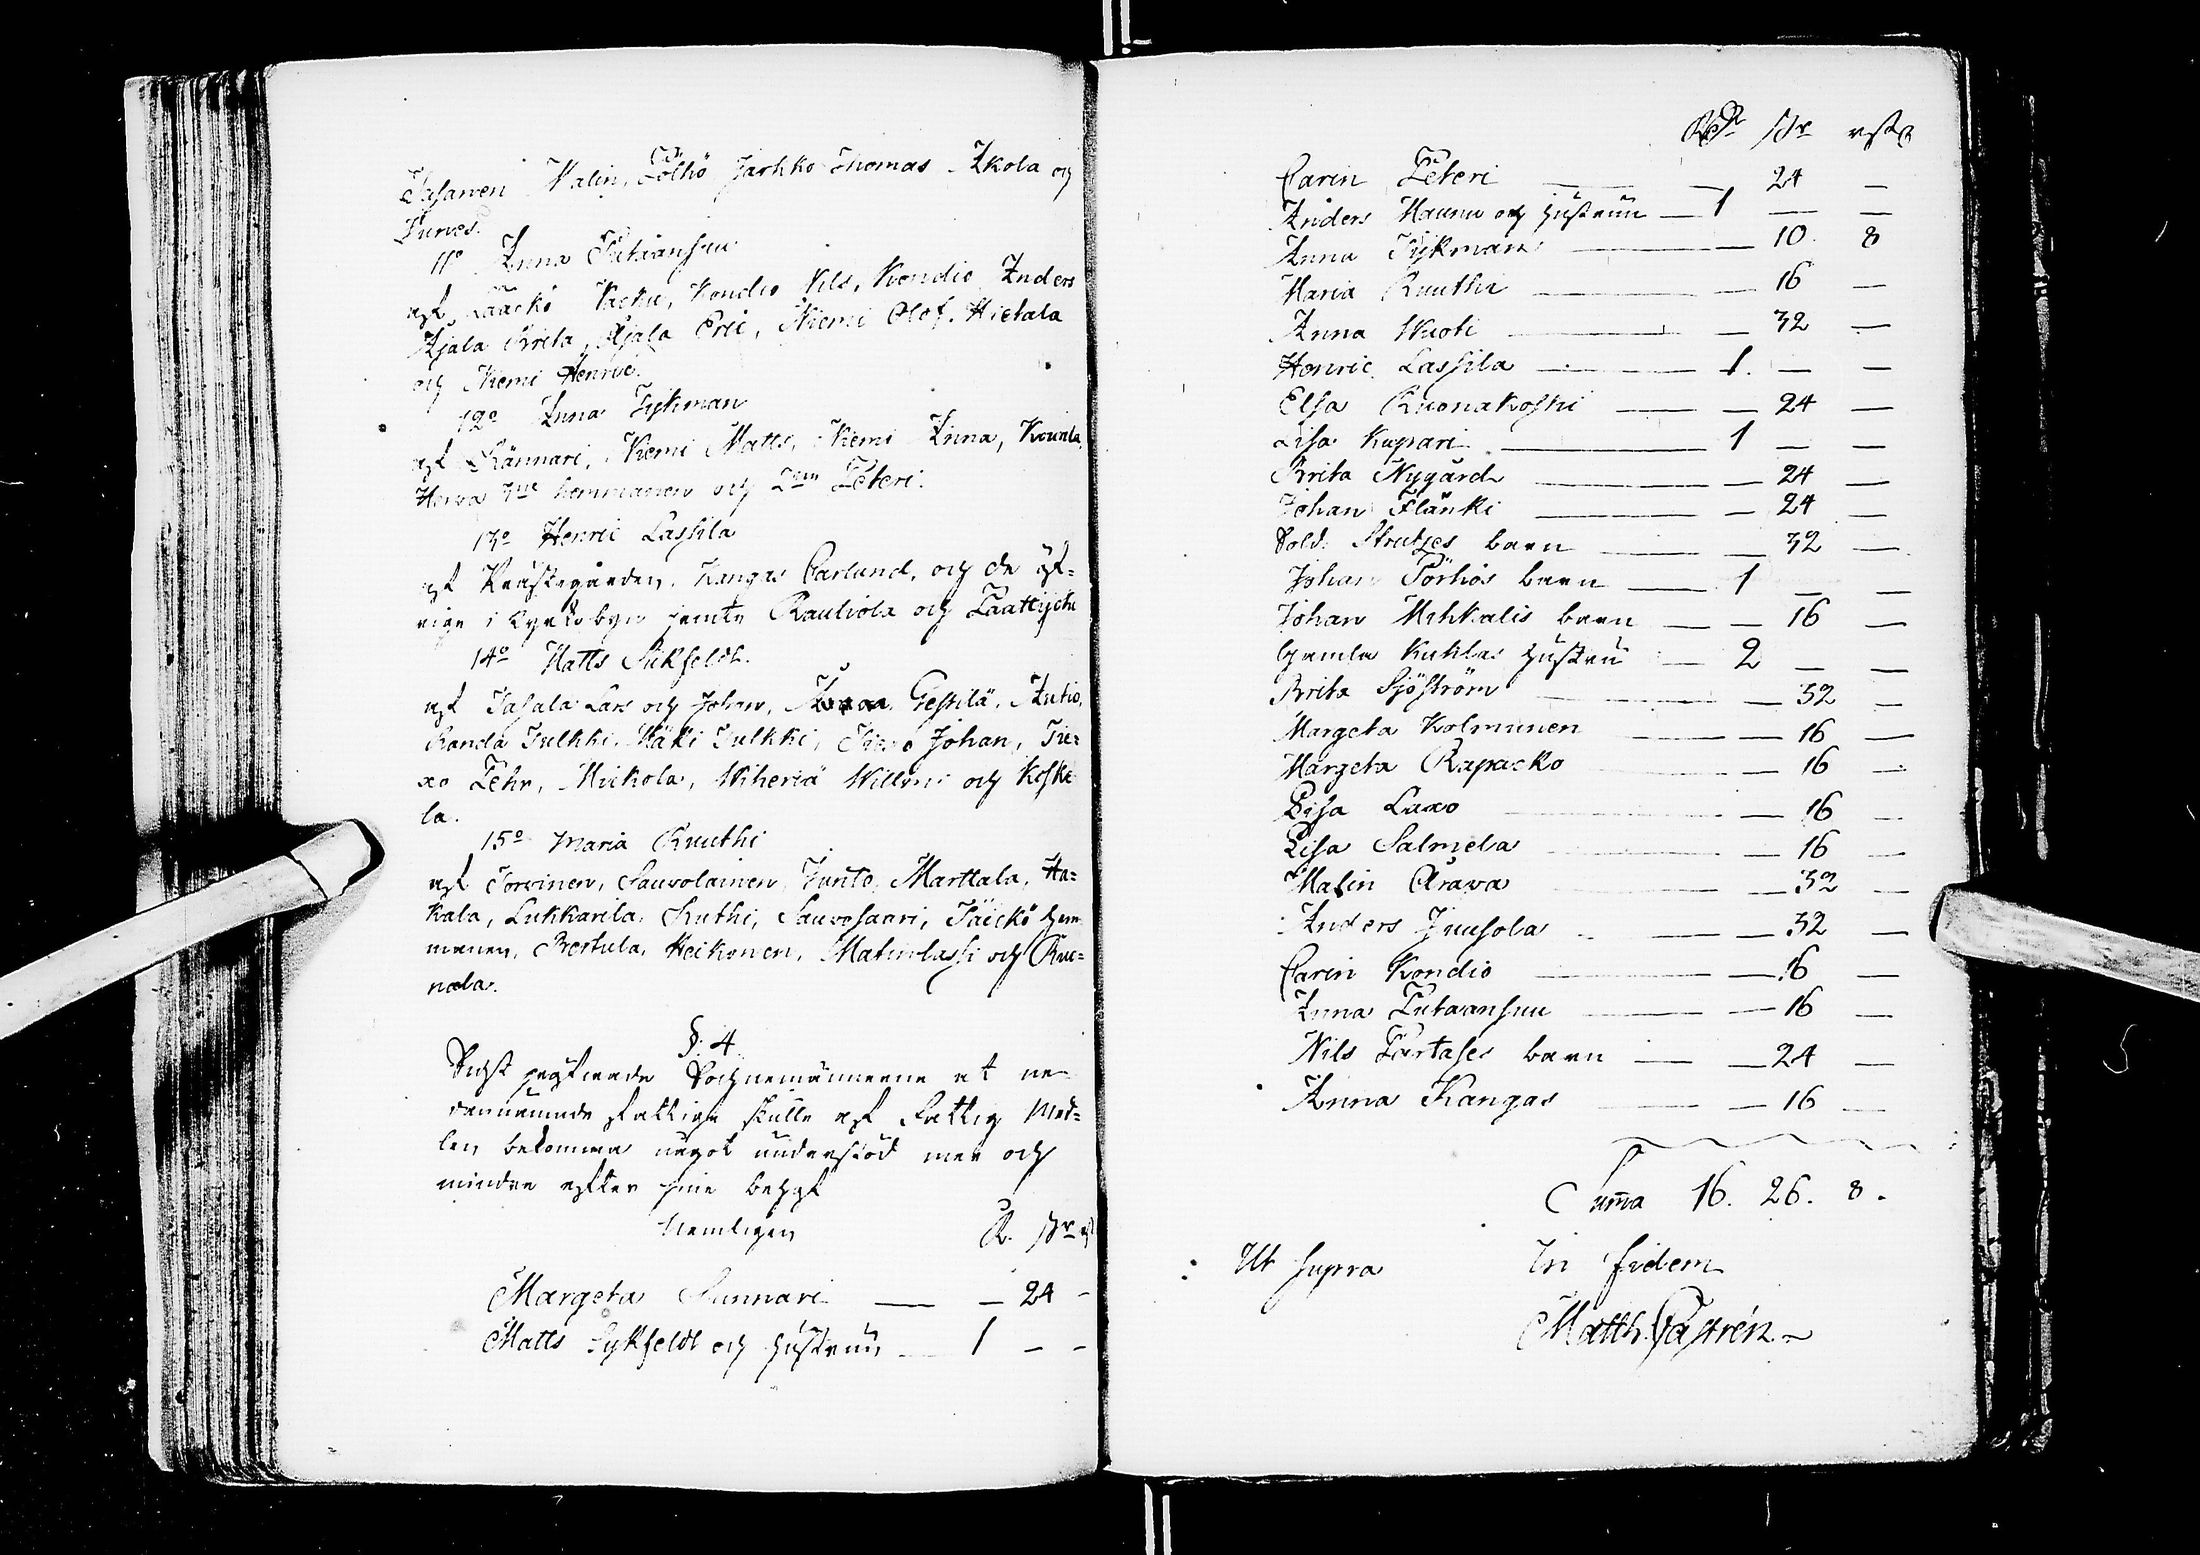 Tasanen Malin, Pöllö Jarkko Thomas Akola och
Turves.
11o Anna Putaansuu
af Lääckö Kacku, Kondio Nils, Kondio Anders
Ajala Brita, Ajala Eric, Niemi Olof, Hietala
och Niemi Henric.
12o Anna Tykman
af Kännäri, Niemi Matts, Niemi Anna, Kouvala,
Herva hemmanen och Peteri.
13o Henric Lassila
af Prästegården, Kangas Carlund, och de öf-
rige i Kyrkobyn jemte Rautiola och Laattijche
14o Matts Sikfeldt.
af Jasala Lars och Johan, Gestilä, Autio,
Randa Tulkki, Mäki Tulkki, Johan, Tie-
xo Pehr, Mickola, Wiheriä Willoni och Koske
la.
15o Maria Ruuthi
af Torvinen, Sauvolainen, Junto, Marttala, Ha-
kala, Lukkarila, Ruthi, Sauvosaari, Päickö hem
manen, Bertula, Heikonen, Matinlassi och Rue-
nala.
§. 4.
Sidst påstäende Sochnemännerne at ne-
dannämnde fattige skulle af Fattig Med-
len bekomma något understöd mer och
mindre efter sine behof
Nemligen R. sk. rst
Margeta Sunnari — — 24 -
Matts Sykfeldt och hustru — 1 - -
Rd:r sk:r rst:r
Carin Peteri — — 24 —
Anders Maunu och hustru — 1 — —
Anna Tykman — — 10. 8
Maria Ruuthi — — 16 —
Anna Wuoti — — 32 —
Henric Lassila — 1. — —
Elsa Ruonakoski — — 24 —
Lisa Kupari — 1 — —
Brita Nygård — — 24 —
Johan Flänki — — 24 —
Sold. Strutzes barn — — 32 —
Johan Pörhös barn — 1 — —
Johan Mihkalis barn — — 16 —
Gamla Kuklas hustru — 2 — —
Brita Sjöström — — 32 —
Margeta Kolmunen — — 16 —
Margeta Rapacko — — 16 —
Lisa Laxo — — 16 —
Lisa Salmela — — 16 —
Malin Arava — — 32 —
Anders Juusola — — 32 —
Carin Kondio — — 16 —
Anna Putaansuu — — 16 —
Nils Partases barn — — 24 —
Anna Kangas — — 16 —
Summa 16. 26. 8.
Ut supra In fidem
Matth. Castrén